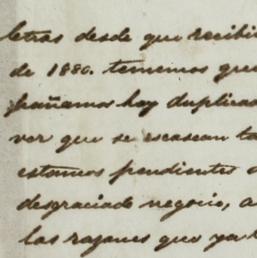 letras desde que recibi
de 1880. tenemos que
pañamos hoy duplicad
ver que se escasean ta
estamos pendientes d
desgraciado negocio, a
las razones que ya t